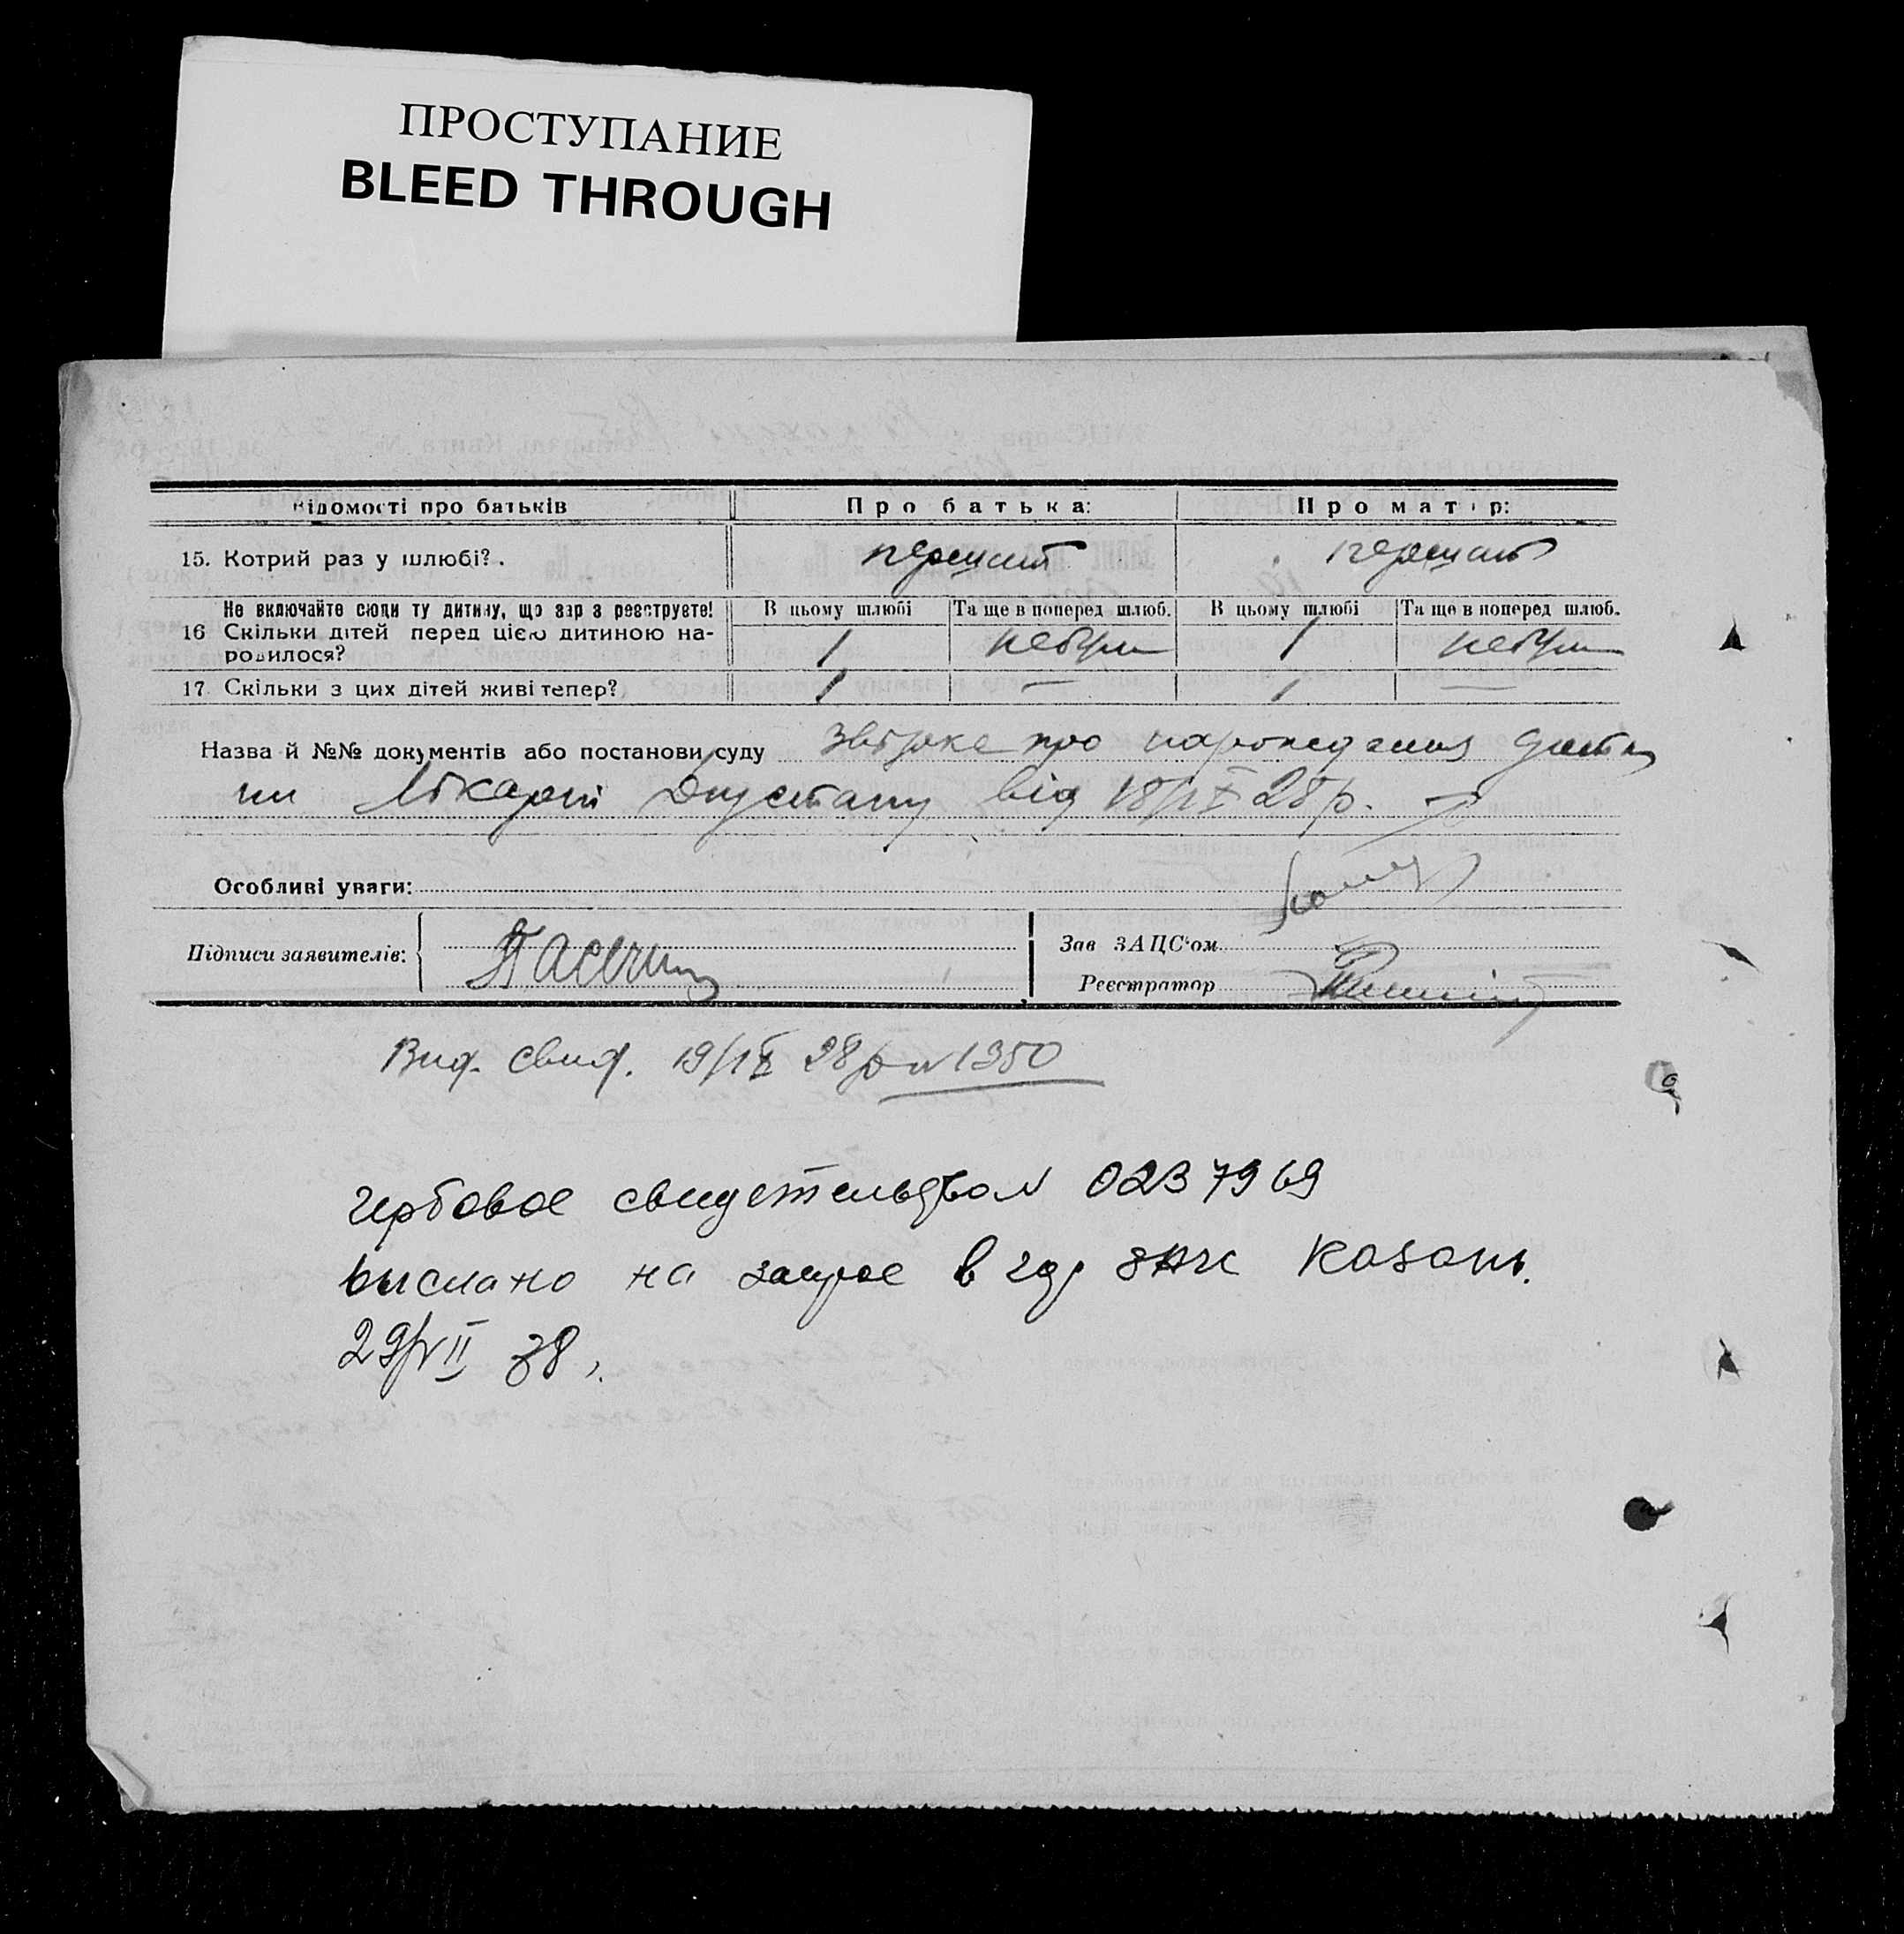 ПРОСТУПАНИЕ
BLEED THROUGH
Відомості про батьків Про батька: Про матір:
15. Котрий раз у шлюбі?. перший перший
Не включайте сюди ту дитину, що зараз реєструєте! В цьому шлюбі Та ще в поперед шлюб. В цьому шлюбі Та ще в поперед шлюб.
16 Скільки дітей перед цією дитиною на-
родилося? 1 1
17. Скільки з цих дітей живі тепер? 1 — 1 —
Назва й №№ документів або постанови суду про народження дити
ни від 18/IX 28 р.
Особливі уваги:
Підписи заявителів: Зав ЗАЦС'ом
Реєстратор
Вид. свид. 19/IX 28 р № 1350
гербовое свидетельство N 0237969
выслано на запрос в гор загс Казань.
29/VII 38 г.